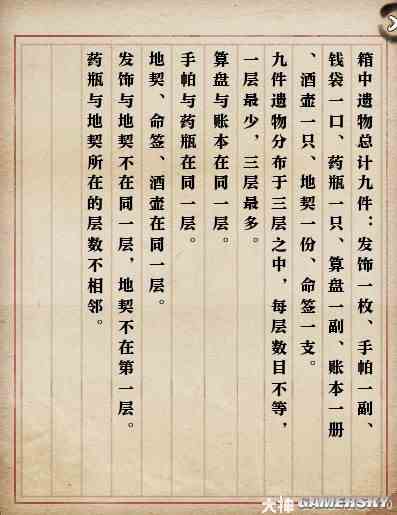 箱中遗物总计九件：发饰一枚、手帕一副、
钱袋一口、药瓶一只、算盘一副、账本一册
、酒壶一只、地契一份、命签一支。
九件遗物分布于三层之中，每层数目不等，
一层最少，三层最多。
算盘与账本在同一层。
手帕与药瓶在同一层。
地契、命签、酒壶在同一层。
发饰与地契不在同一层，地契不在第一层。
药瓶与地契所在的层数不相邻。
大神 GAMERSKY